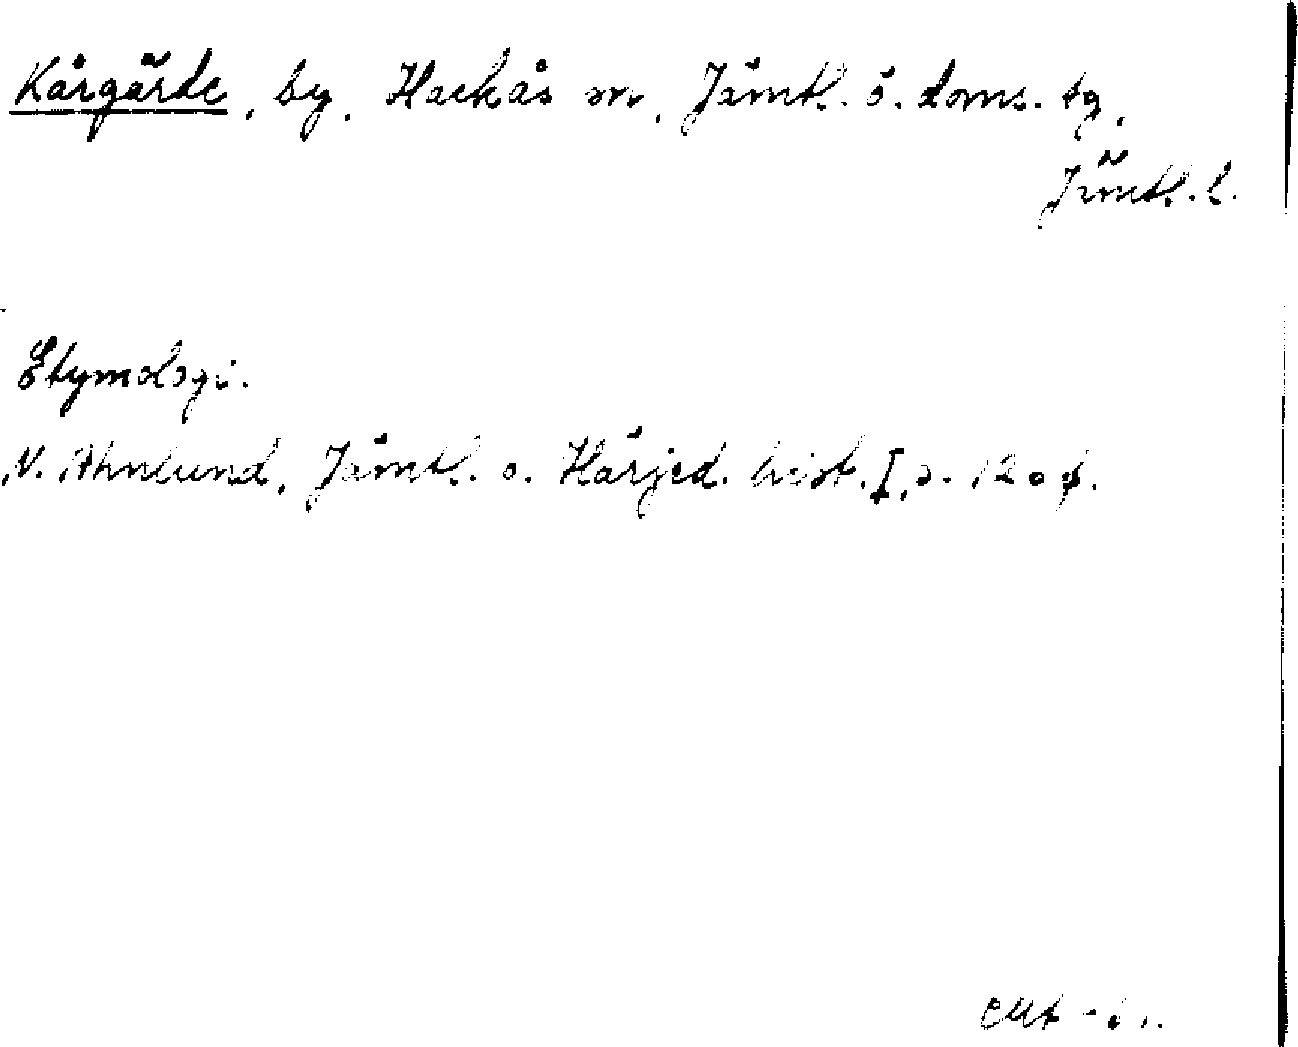 Kårgärde, by, Hackås sn, Jämtl. ö. doms. tg,
Jämtl. l.
Etymologi.
N. Ahnlund, Jämtl. o. Härjed. hist. I, s. 120 f.